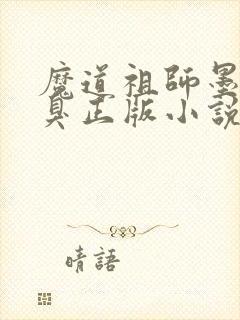 魔道祖師墨
臭正版小說
晴語